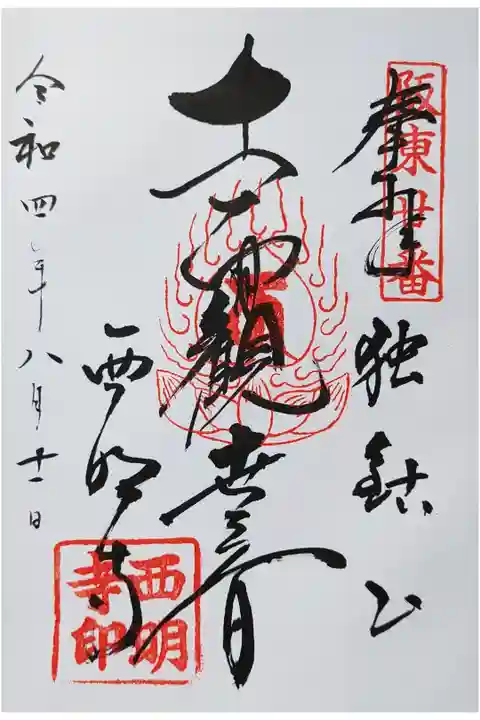 阪東廿番
奉拝 独鈷山
十一面觀世音
西明寺
西明寺印
令和四年八月十一日